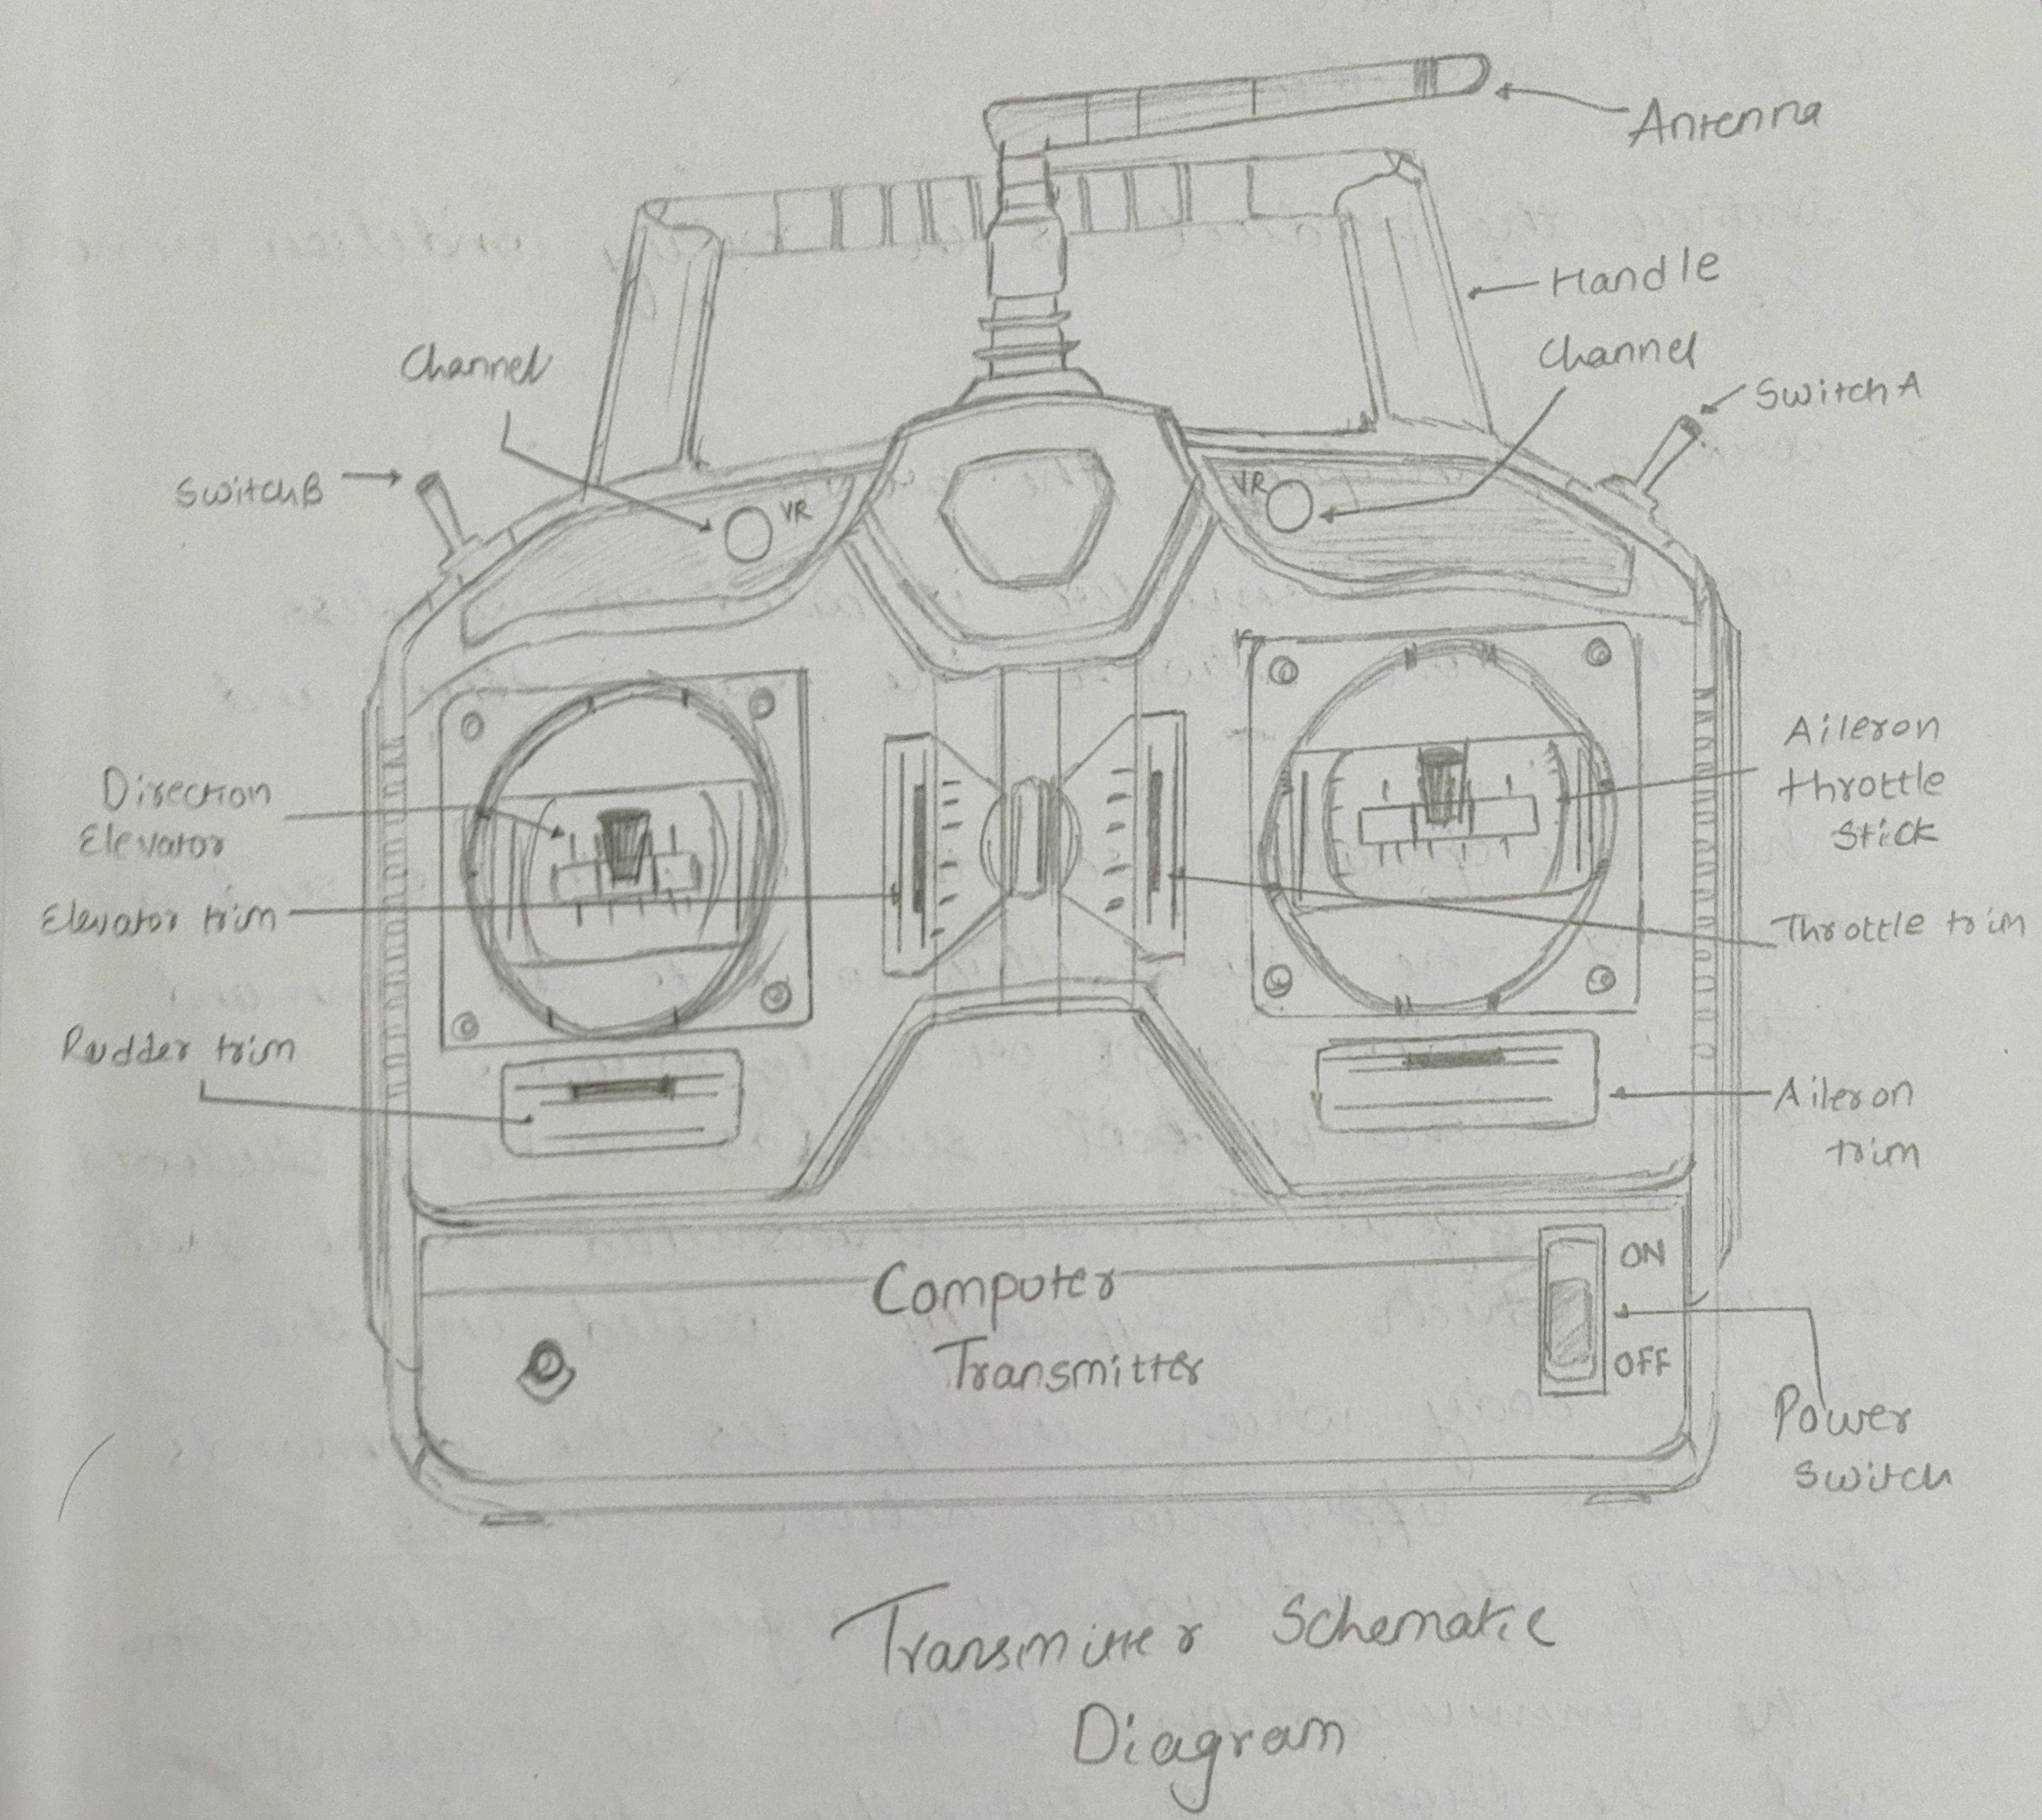 Antenna
Handle
Channel
Channel
Switch A
Switch B
VR
VR
Direction
Elevator
Aileron
throttle
stick
Elevator trim
Throttle trim
Rudder trim
Aileron
trim
ON
Computer
Transmitter
OFF
Power
Switch
Transmitter Schematic
Diagram